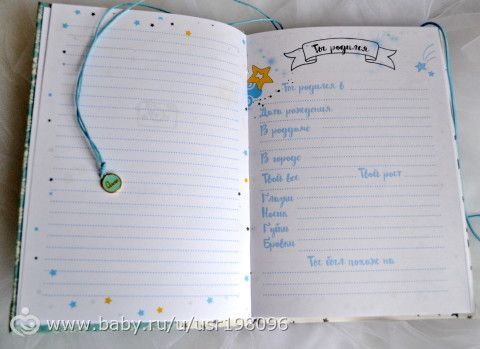 Ты родился
Ты родился в
Дата рождения
В роддоме
В городе
Твой вес Твой рост
Глазки
Носик
Губки
Бровки
Ты был похож на
www.baby.ru/u/usr198096